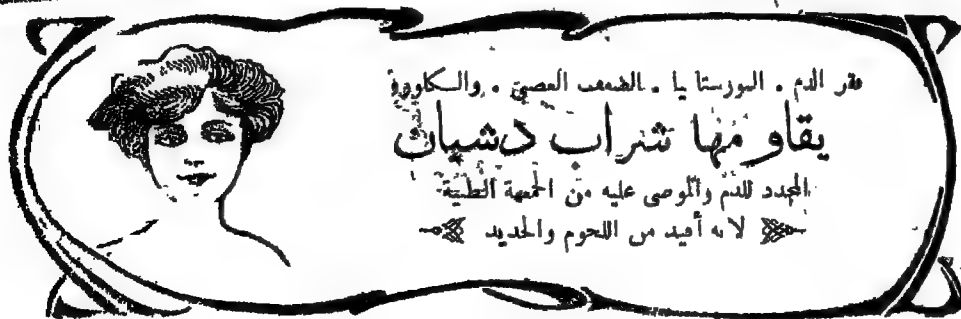 فقر الدم . النورستانيا . الضعف العصبي . والسكلوروز
يقاومها شراب دشيان
المجدد للدم والموصى عليه من الجمعية الطبية
لانه أفيد من اللحوم والحديد